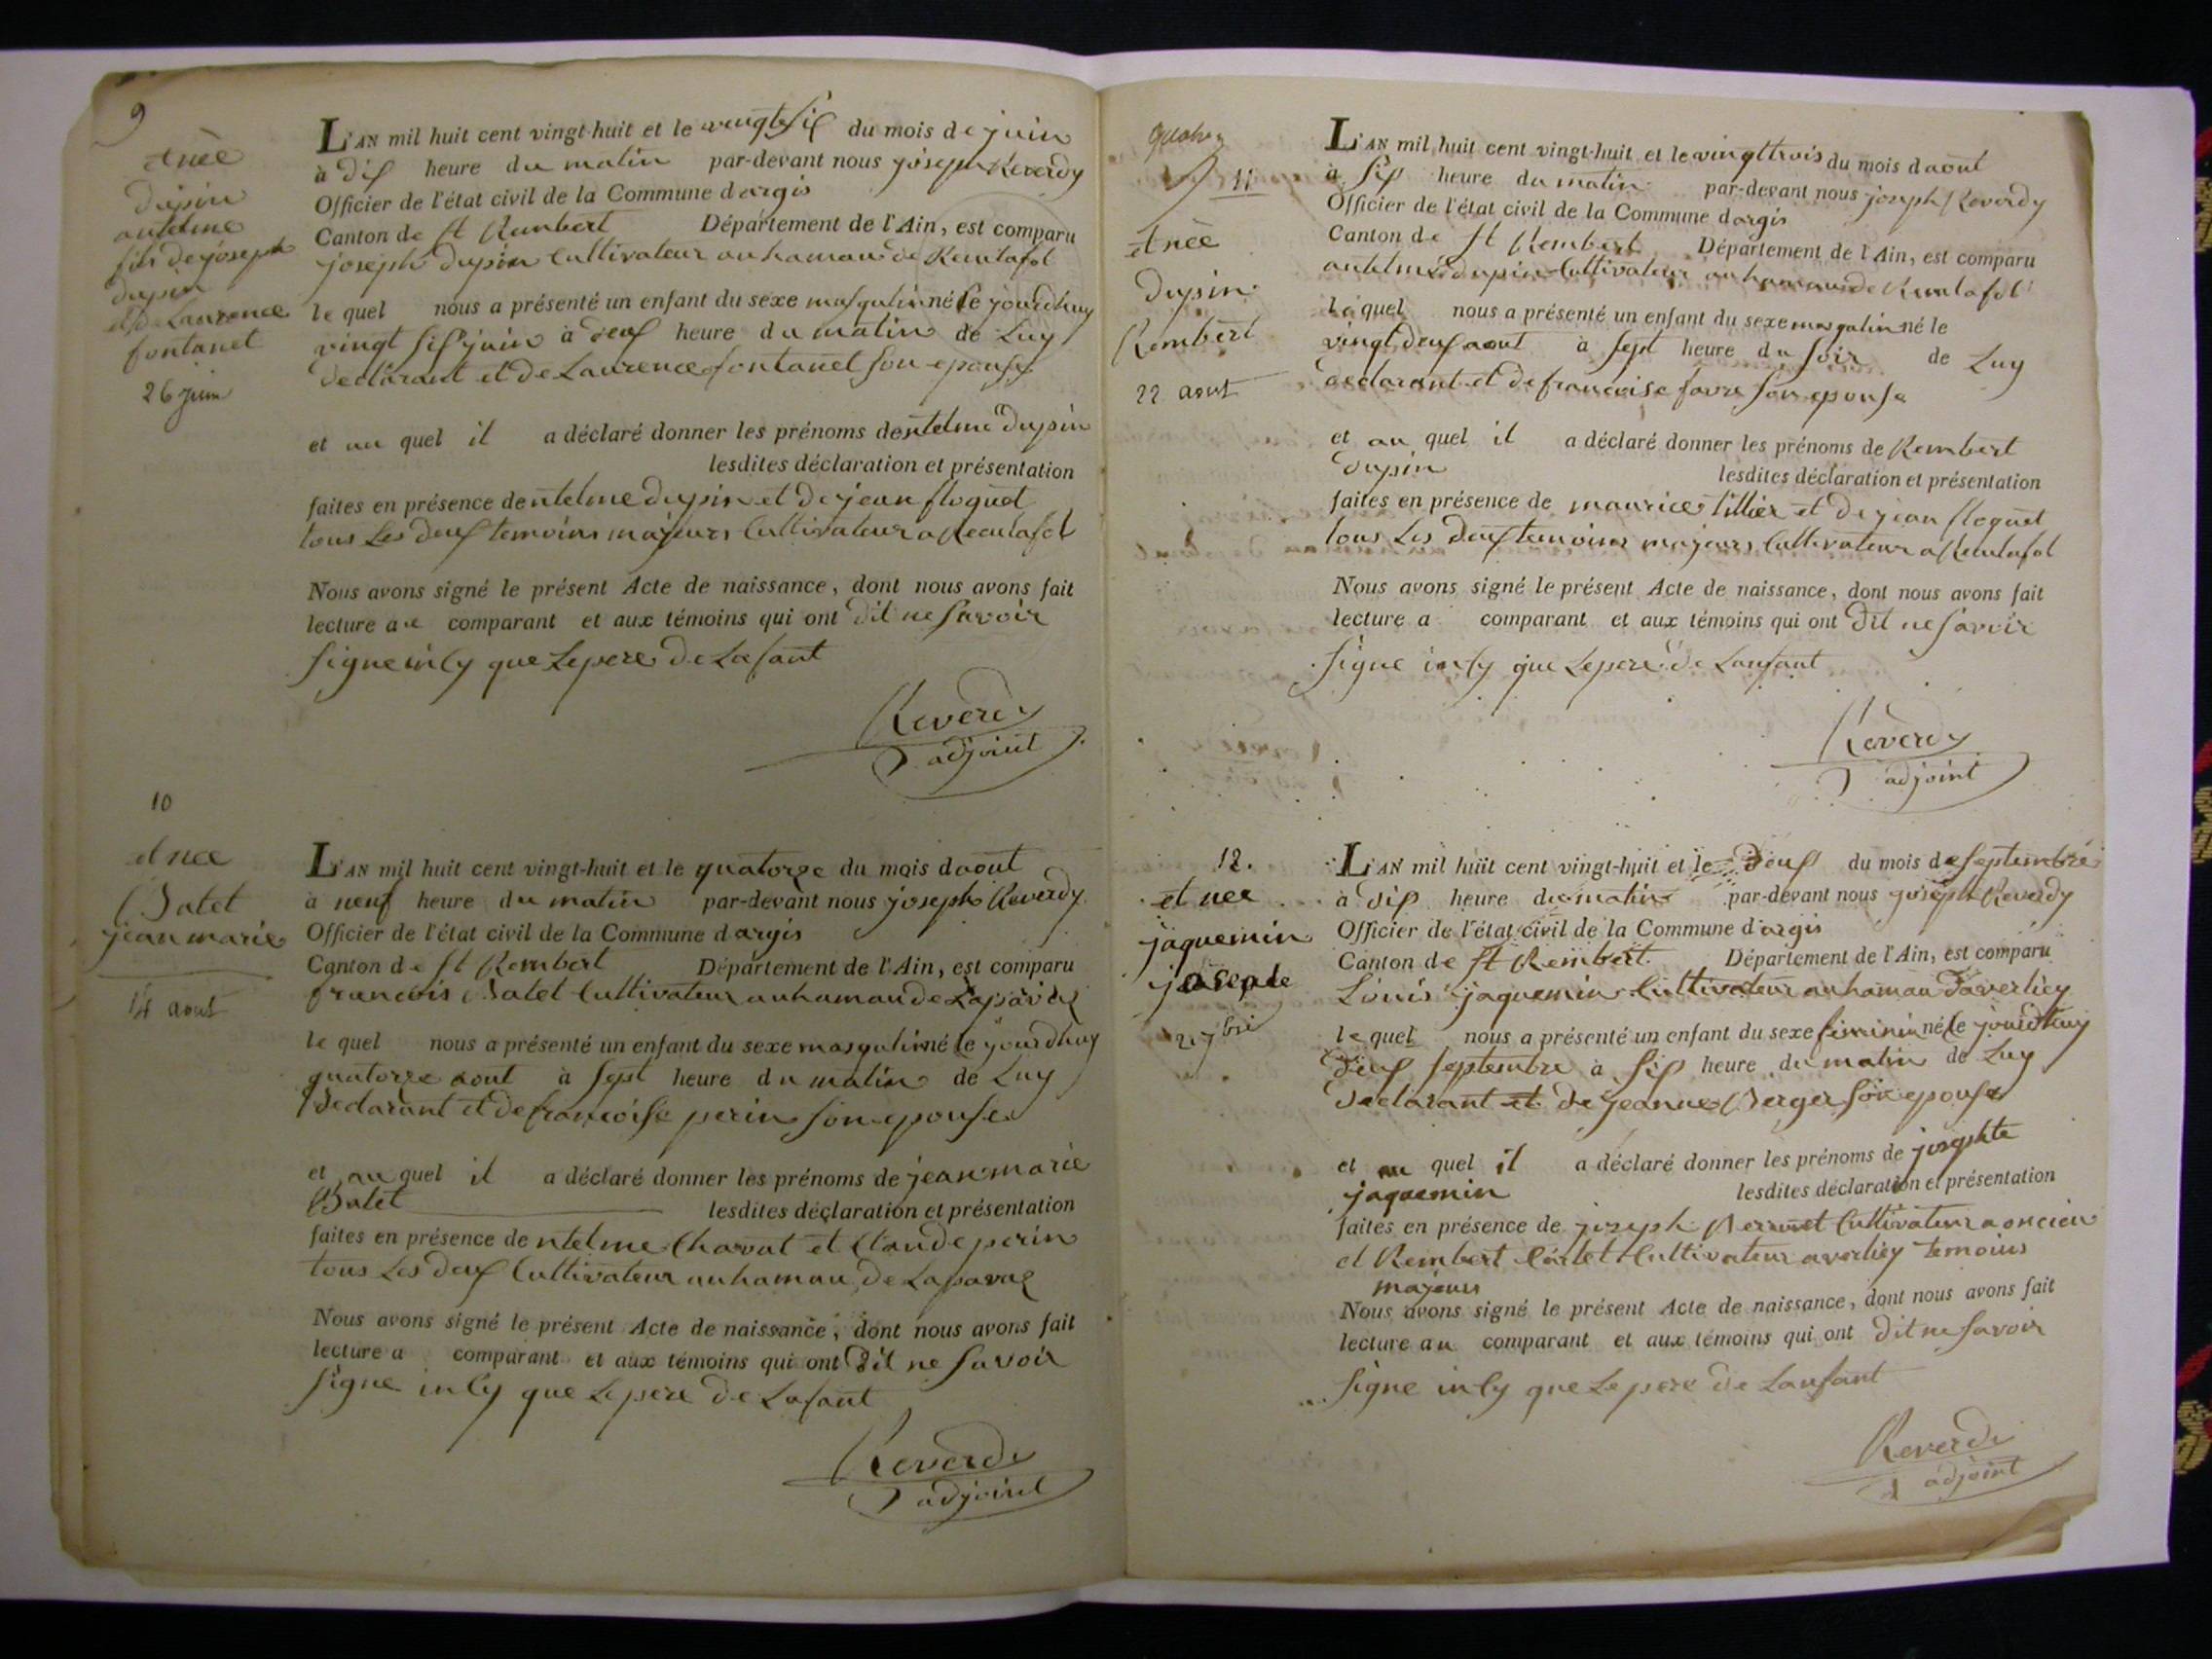 9
et née
dupin
antelme
fils de joseph
dupin
et de Laurence
fontanet
26 juin
L'AN mil huit cent vingt-huit et le vingt six du mois de juin
à dix heure du matin par-devant nous joseph Reverdy
Officier de l'état civil de la Commune dargis
Canton de St Rambert Département de l'Ain, est comparu
joseph dupin Cultivateur au hamau de Reculafol
le quel nous a présenté un enfant du sexe masqulin né le jourdhuy
vingt six juin à deux heure du matin de Luy
declarant et de Laurence fontanet son epouse
et au quel il a déclaré donner les prénoms dentelme dupin
lesdites déclaration et présentation
faites en présence dentelme dupin et de jean floquet
tous Les deux temoins majeurs Cultivateur a Reculafol
Nous avons signé le présent Acte de naissance, dont nous avons fait
lecture au comparant et aux témoins qui ont dit ne savoir
signe inly que Le pere de Lafant
Reverdy
adjoint
10
et nee
Batet
jean marie
14 aout
L'AN mil huit cent vingt-huit et le quatorze du mois daout
à neuf heure du matin par-devant nous joseph Reverdy
Officier de l'état civil de la Commune dargis
Canton de St Rembert Département de l'Ain, est comparu
francois Batet Cultivateur au hamau de Laparvas
le quel nous a présenté un enfant du sexe masqulin né le jourdhuy
quatorze aout à sept heure du matin de Luy
Declarant et de francoise perin son epouse
et au quel il a déclaré donner les prénoms de jean marie
Batet lesdites déclaration et présentation
faites en présence dentelme Charvat et Claude perin
tous Les deux Cultivateur au hamau de
Nous avons signé le présent Acte de naissance, dont nous avons fait
lecture a comparant et aux témoins qui ont dit ne savoir
signe inly que Le pere de Lafant
Reverdy
adjoint
11
et née
dupin
Rembert
22 aout
L'AN mil huit cent vingt-huit et le vingt trois du mois daout
à six heure du matin par-devant nous joseph Reverdy
Officier de l'état civil de la Commune dargis
Canton de St Rembert Département de l'Ain, est comparu
antelme dupin Cultivateur au hamau de Reculafol
le quel nous a présenté un enfant du sexe masqulin né le
vingt deux aout à sept heure du soir de Luy
declarant et de francoise favre son epouse
et au quel il a déclaré donner les prénoms de Rembert
dupin lesdites déclaration et présentation
faites en présence de maurice tillier et de jean floquet
tous Les deux temoins majeurs Cultivateur a Reculafol
Nous avons signé le présent Acte de naissance, dont nous avons fait
lecture a comparant et aux témoins qui ont dit ne savoir
signe inly que Le pere de Lanfant
Reverdy
adjoint
12.
et nee
jaquemin
2 7bre
L'AN mil huit cent vingt-huit et le deux du mois de septembre
à dix heure du matin par-devant nous joseph Reverdy
Officier de l'état civil de la Commune dargis
Canton de St Rembert Département de l'Ain, est comparu
Louis jaquemin Cultivateur au hamau daverliey
le quel nous a présenté un enfant du sexe feminin né le jourdhuy
deux septembre à six heure du matin de Luy
declarant et de jeanne Berger son epouse
et au quel il a déclaré donner les prénoms de josephte
jaquemin lesdites déclaration et présentation
faites en présence de joseph Cultivateur a oncieu
et Rembert Cultivateur averliey temoins
majeurs
Nous avons signé le présent Acte de naissance, dont nous avons fait
lecture au comparant et aux témoins qui ont dit ne savoir
signe inly que Le pere de Lanfant
Reverdy
adjoint